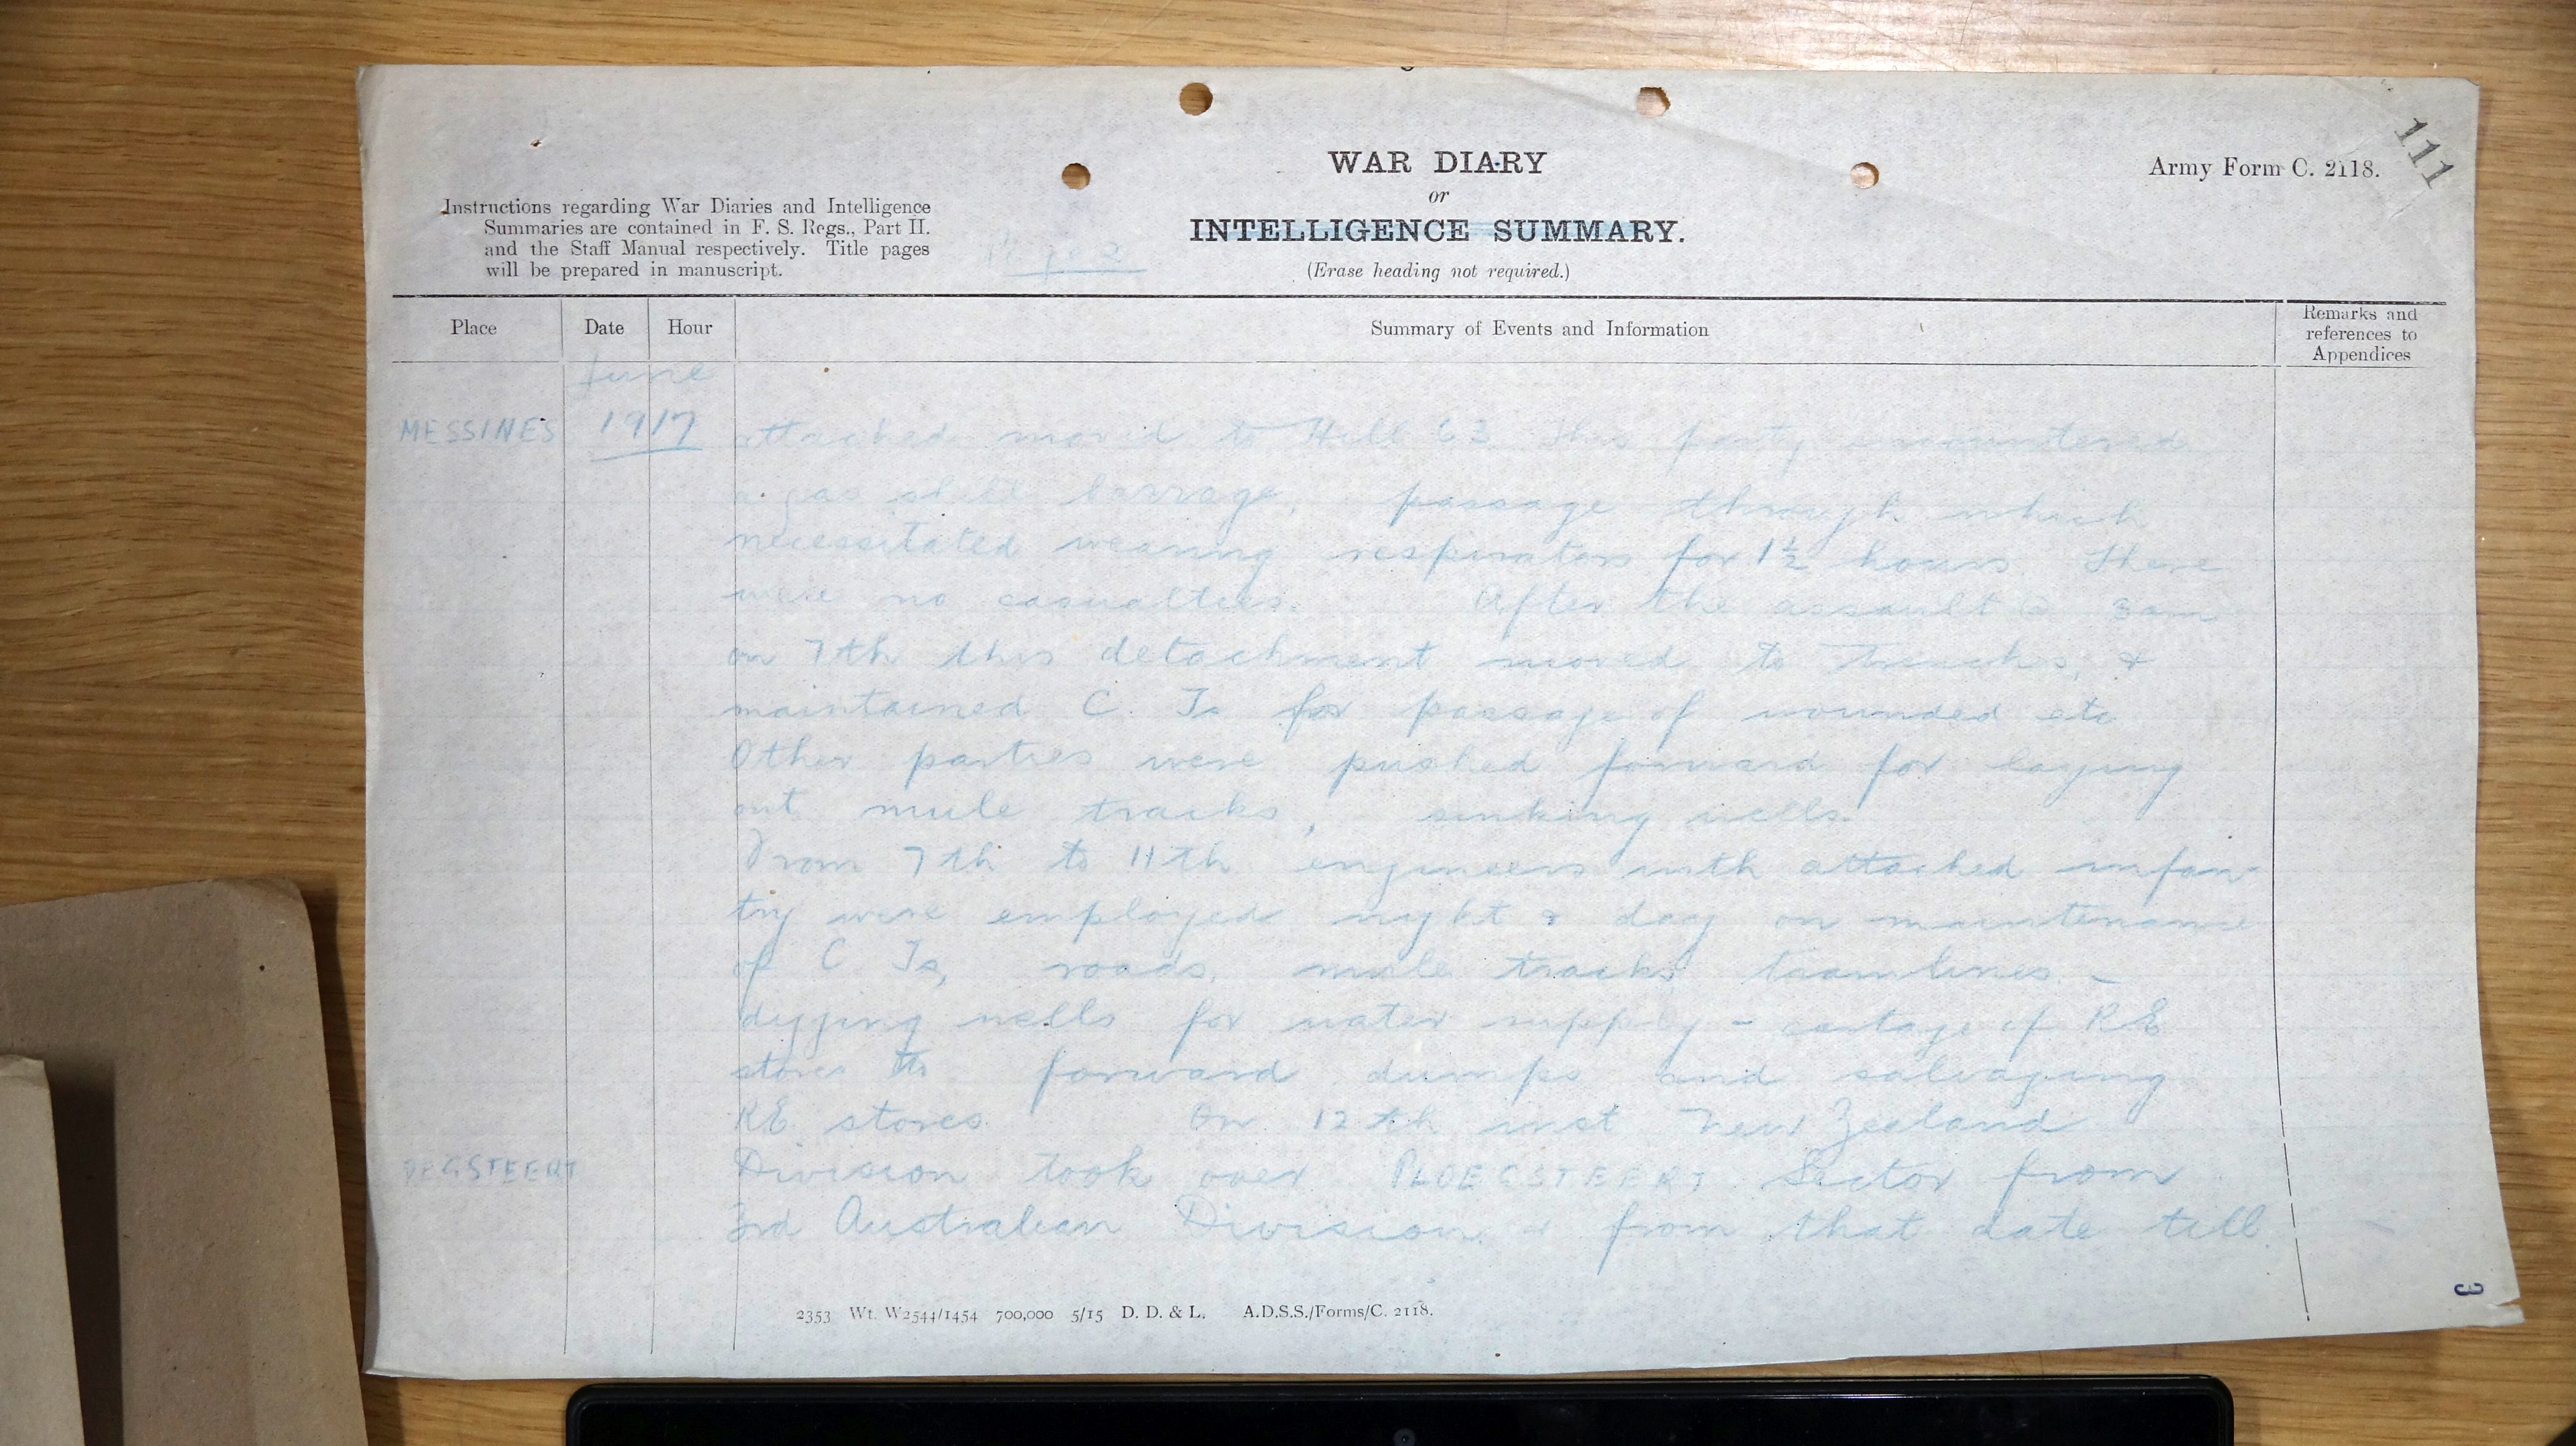 111
Army Form C. 2118.
WAR DIARY
or
INTELLIGENCE SUMMARY.
(Erase heading not required.)
Instructions regarding War Diaries and Intelligence
Summaries are contained in F. S. Regs., Part II.
and the Staff Manual respectively. Title pages
will be prepared in manuscript.
Place Date Hour Summary of Events and Information Remarks and references to Appendices
June
MESSINES 1917 attached moved to Hill 63 This party encountered
a gas shell barrage, passage through which
necessitated wearing respirators for 1½ hours There
were no casualties. After the assault @ 3am
on 7th this detachment moved to trenches, &
maintained C. Ts for passage of wounded etc
Other parties were pushed forward for laying
out mule tracks, sinking wells.
From 7th to 11th engineers with attached infan-
try were employed night & day on maintenance
of C Ts, roads, mule tracks tramlines -
digging wells for water supply - cartage of RE
stores to forward dumps and salvaging
RE stores. On 12th inst New Zealand
Division took over PLOEGSTEERT Sector from
3rd Australian Division & from that date till
3
2353 Wt. W2544/1454 700,000 5/15 D. D. & L. A.D.S.S./Forms/C. 2118.